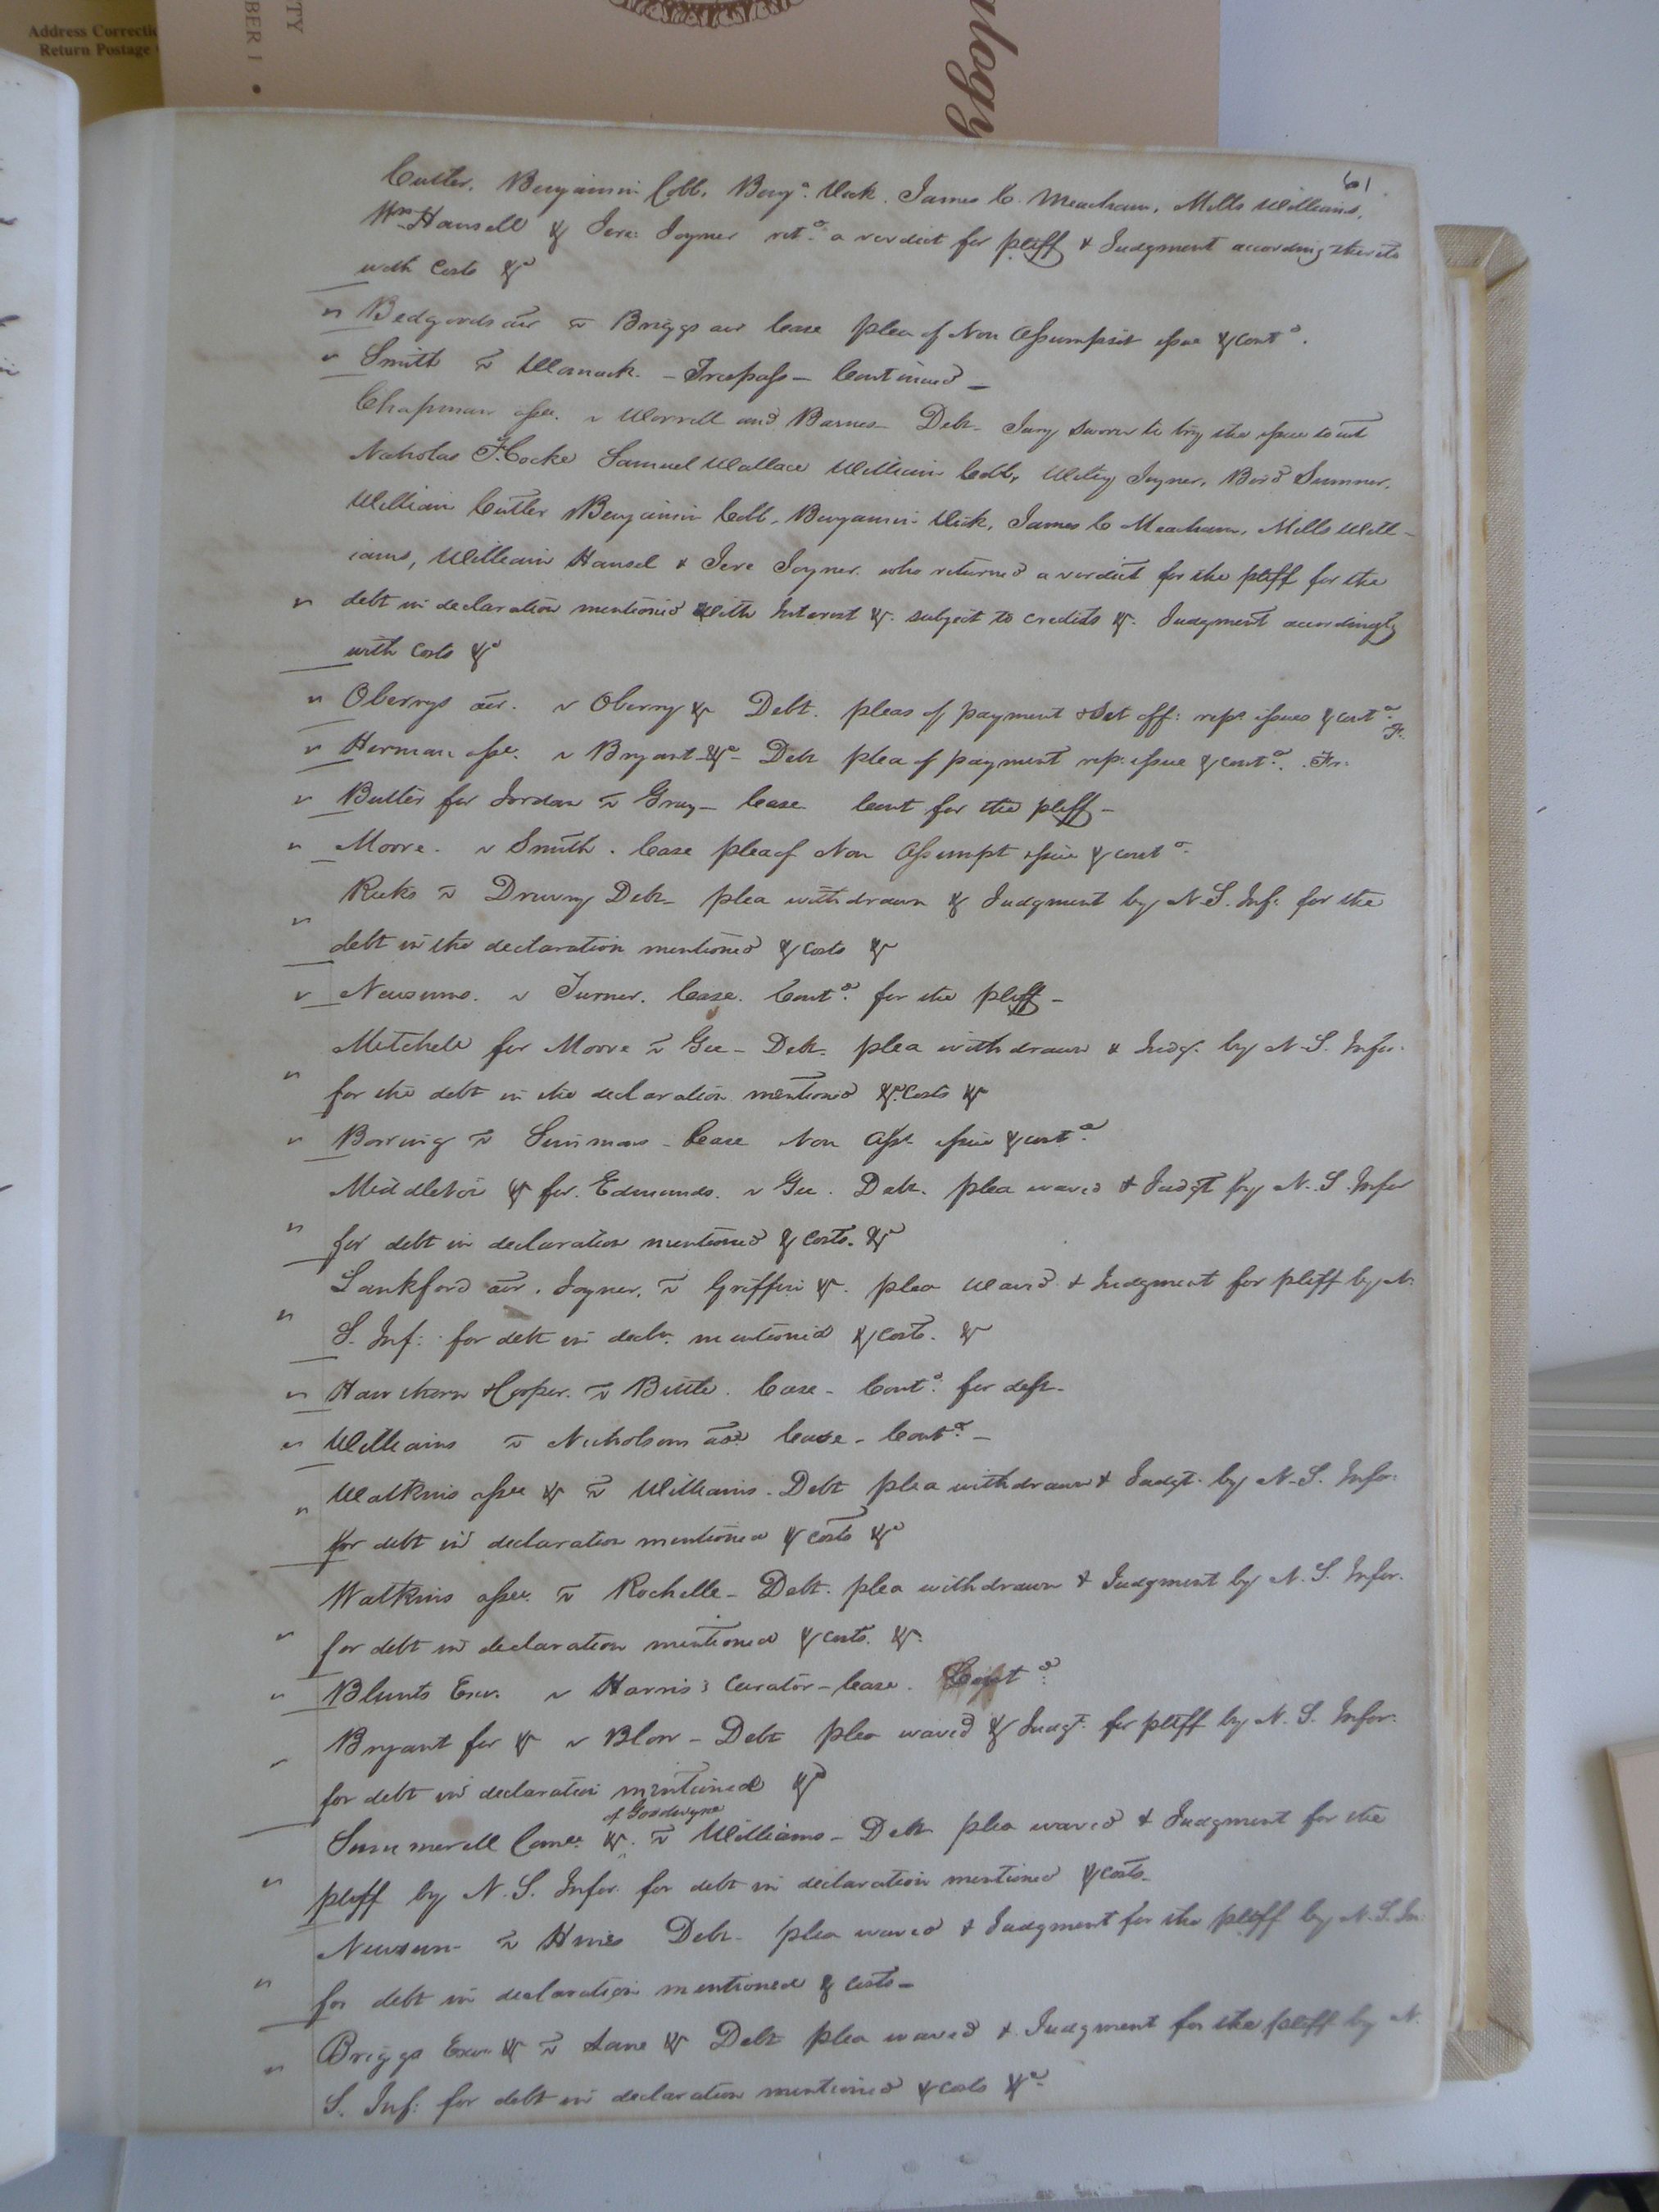 Address Correcti
Return Postage
TY
BER 1 •
ology
61
Cutler, Benjamin Cobb, Benjª. Vick, James C. Meacham, Mills Williams,
Wm Hansell & Jere: Joyner retd. a verdict for pltff & Judgment according thereto
with Costs &c
Bedgoods adr v Briggs adr Case plea of Non Assumpsit issue & contd.
Smith v Womack. - Trespass - Continued -
Chapman assee. v Worrell and Barnes - Debt - Jury sworn to try the issue to wit
Nicholas Samuel Wallace William Cobb, Joyner, Bird Sumner,
William Cutler Benjamin Cobb, Benjamin Vick, James C Meacham, Mills Will-
iams, William Hansel & Jere Joyner who returned a verdict for the pltff for the
debt in declaration mentioned with Interest &c. subject to credits &c. Judgment accordingly
with Costs &c
Oberrys adr. v Oberry &c Debt. pleas of payment & Set off: repn. issues & contd. Fr.
Herman assee. v Bryant &c - Debt plea of payment rep. issue & contd. Fr:
Butler for Jordan v Gray - Case Cont for the pltff -
Moore. v Smith. Case plea of Non Assumpt issue & contd.
Ricks v Drewry Debt - plea withdrawn & Judgment by N S. Inf: for the
debt in the declaration mentioned & Costs &c
Newsums. v Turner. Case. Contd. for the pltff -
Mitchell for Moore v Gee - Debt. plea withdrawn & Judgt. by N. S. Infor.
for the debt in the declaration mentioned & Costs &c
v Simmons - Case Non Asst issue & contd.
Middleton &c for Edmunds. v Gee. Debt. plea waved & Judgt by N. S. Infor
for debt in declaration mentioned & Costs. &c
Lankford adr. Joyner. v Griffin &c. plea waivd. & Judgment for pltff by N.
S. Inf: for debt in decln. mentioned & Costs. &c
Hawthorn & Cooper. v Bittle. Case - Contd. for deft -
Williams v Nicholson Case - Contd. -
Watkins assee &c v Williams. Debt plea withdrawn & Judgt. by N. S. Infor:
for debt in declaration mentioned & Costs &c
Watkins assee. v Rochelle - Debt. plea withdrawn & Judgment by N. S. Infor.
for debt in declaration mentioned & costs. &c.
Blunts Exor. v Harris's Curator - Case. Contd.
Bryant for &c v Blow - Debt plea waved & Judgt. for pltff by N. S. Infor.
for debt in declaration mentioned &c
of Goodwynn
Summerell Comee. &c. v Williams - Debt plea waved & Judgment for the
pltff by N. S. Infor. for debt in declaration mentioned & Costs -
Newsum - v Hines Debt - plea waved & Judgment for the pltff by N. S. In:
for debt in declaration mentioned & Costs -
Briggs Exor &c v Lane &c Debt plea waved & Judgment for the pltff by N.
S. Inf: for debt in declaration mentioned & Costs &c